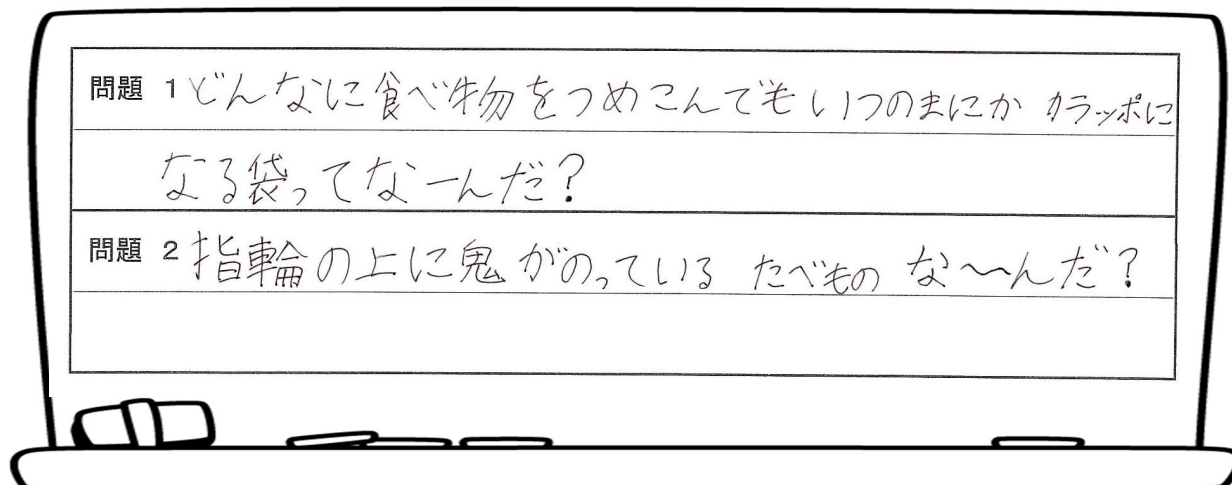 問題 1 どんなに食べ物をつめこんでもいつのまにか カラッポに
なる袋ってなーんだ?
問題 2 指輪の上に鬼がのっている たべもの な〜んだ?